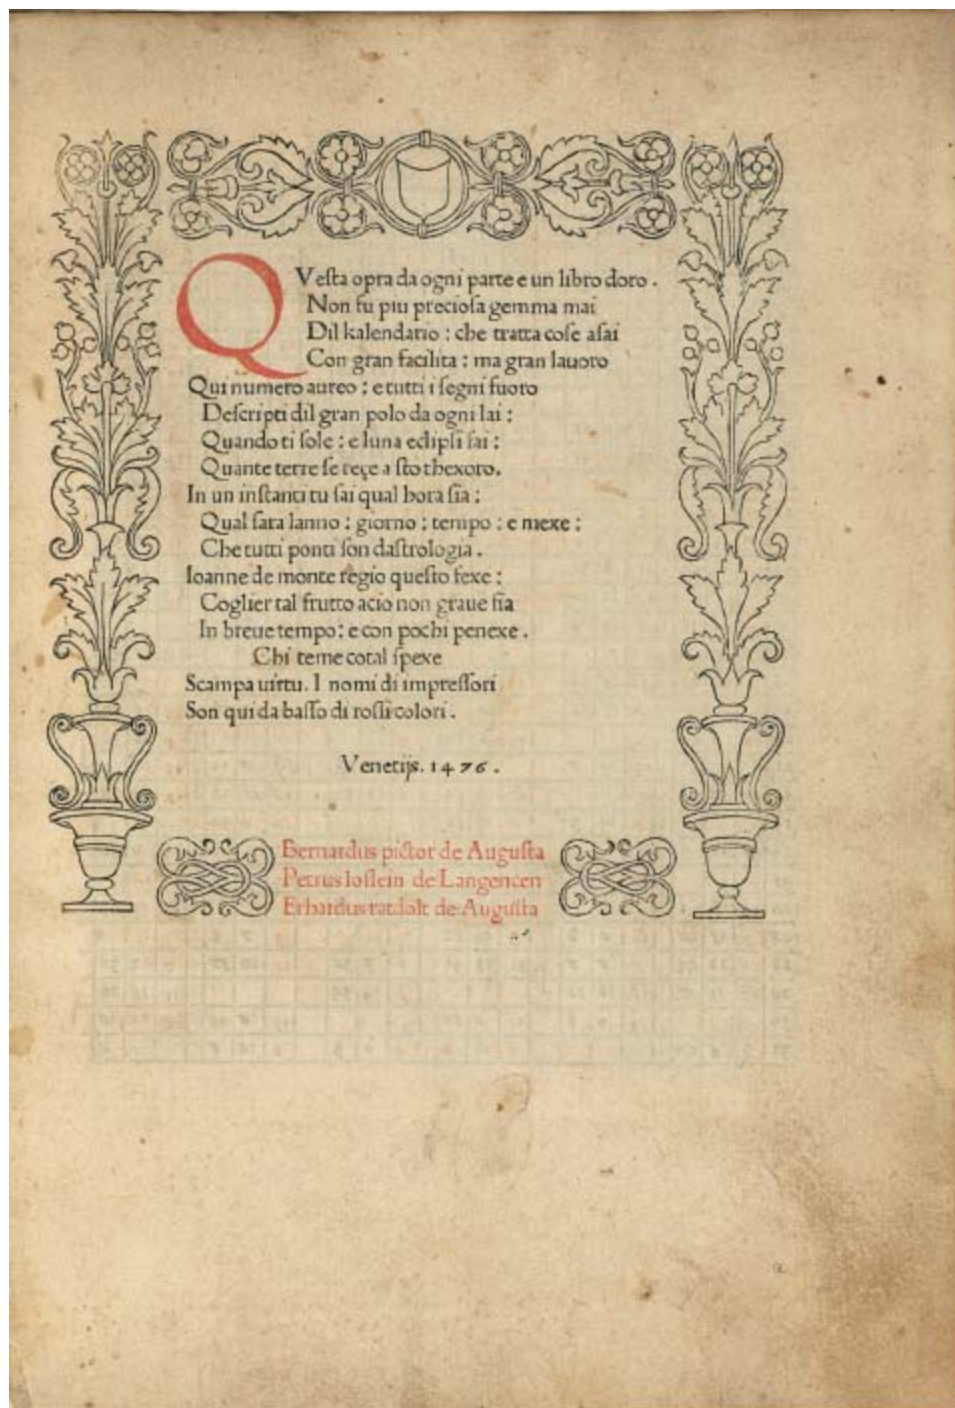 QVesta opra da ogni parte e un libro doro.
Non fu piu preciosa gemma mai
Dil kalendario: che tratta cose asai
Con gran facilita: ma gran lauoro
Qui numero aureo: e tutti i segni fuoro
Descripti dil gran polo da ogni lai:
Quando ti sole: e luna eclipsi fai:
Quante terre se reçe a sto thexoro.
In un instanti tu sai qual hora sia:
Qual sara lanno: giorno: tempo: e mexe:
Che tutti ponti son dastrologia.
Ioanne de monte regio questo fexe:
Coglier tal frutto acio non graue sia
In breue tempo: e con pochi penexe.
Chi teme cotal spexe
Scampa uirtu. I nomi di impressori
Son qui da basso di rossi colori.
Venetijs. 1476.
Bernardus pictor de Augusta
Petrus loslein de Langencen
Erhardus ratdolt de Augusta